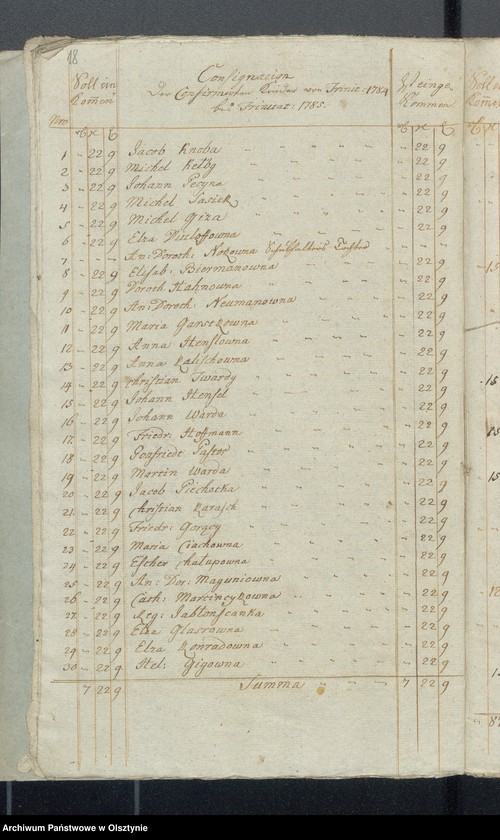 18
Consignacion
Der Confirmirten Kinder von Trinit: 1784
bis Trinitat: 1785.
Soll ein
Komen
Ist einge
Kommen
Nro
1 - 22 9 Jacob Knoba - 22 9
2 - 22 9 Michel Kelbg - 22 9
3 - 22 9 Johann Pecyna - 22 9
4 - 22 9 Michel Sasiek - 22 9
5 - 22 9 Michel Giza - 22 9
6 - 22 9 Elza - 22 9
7 - - - An: Doroth: Nokowna - - -
8 - 22 9 Elisab: Biermanowna - 22 9
9 - 22 9 Doroth Hahnowna - 22 9
10 - 22 9 An: Doroth: Neumanowna - 22 9
11 - 22 9 Maria - 22 9
12 - 22 9 Anna Henslowna - 22 9
13 - 22 9 Anna Kalischowna - 22 9
14 - 22 9 Christian Twardy - 22 9
15 - 22 9 Johann Hensel - 22 9
16 - 22 9 Johann Warda - 22 9
17 - 22 9 Friedr: Hoffmann - 22 9
18 - 22 9 Gottfriedt Pastor - 22 9
19 - 22 9 Martin Warda - 22 9
20 - 22 9 Jacob Piechotka - 22 9
21 - 22 9 Christian Karasch - 22 9
22 - 22 9 Friedr: Gorgcy - 22 9
23 - 22 9 Maria Ciachowna - 22 9
24 - 22 9 Esther Chalupowna - 22 9
25 - 22 9 An: Maguniowna - 22 9
26 - 22 9 Cath: Marcincykowna - 22 9
27 - 22 9 Reg: Jablonscanka - 22 9
28 - 22 9 Elza Glasrowna - 22 9
29 - 22 9 Elza Konradowna - 22 9
30 - 22 9 Hel: Gigowna - 22 9
7 22 9 Summa - - - 7 22 9
Archiwum Państwowe w Olsztynie